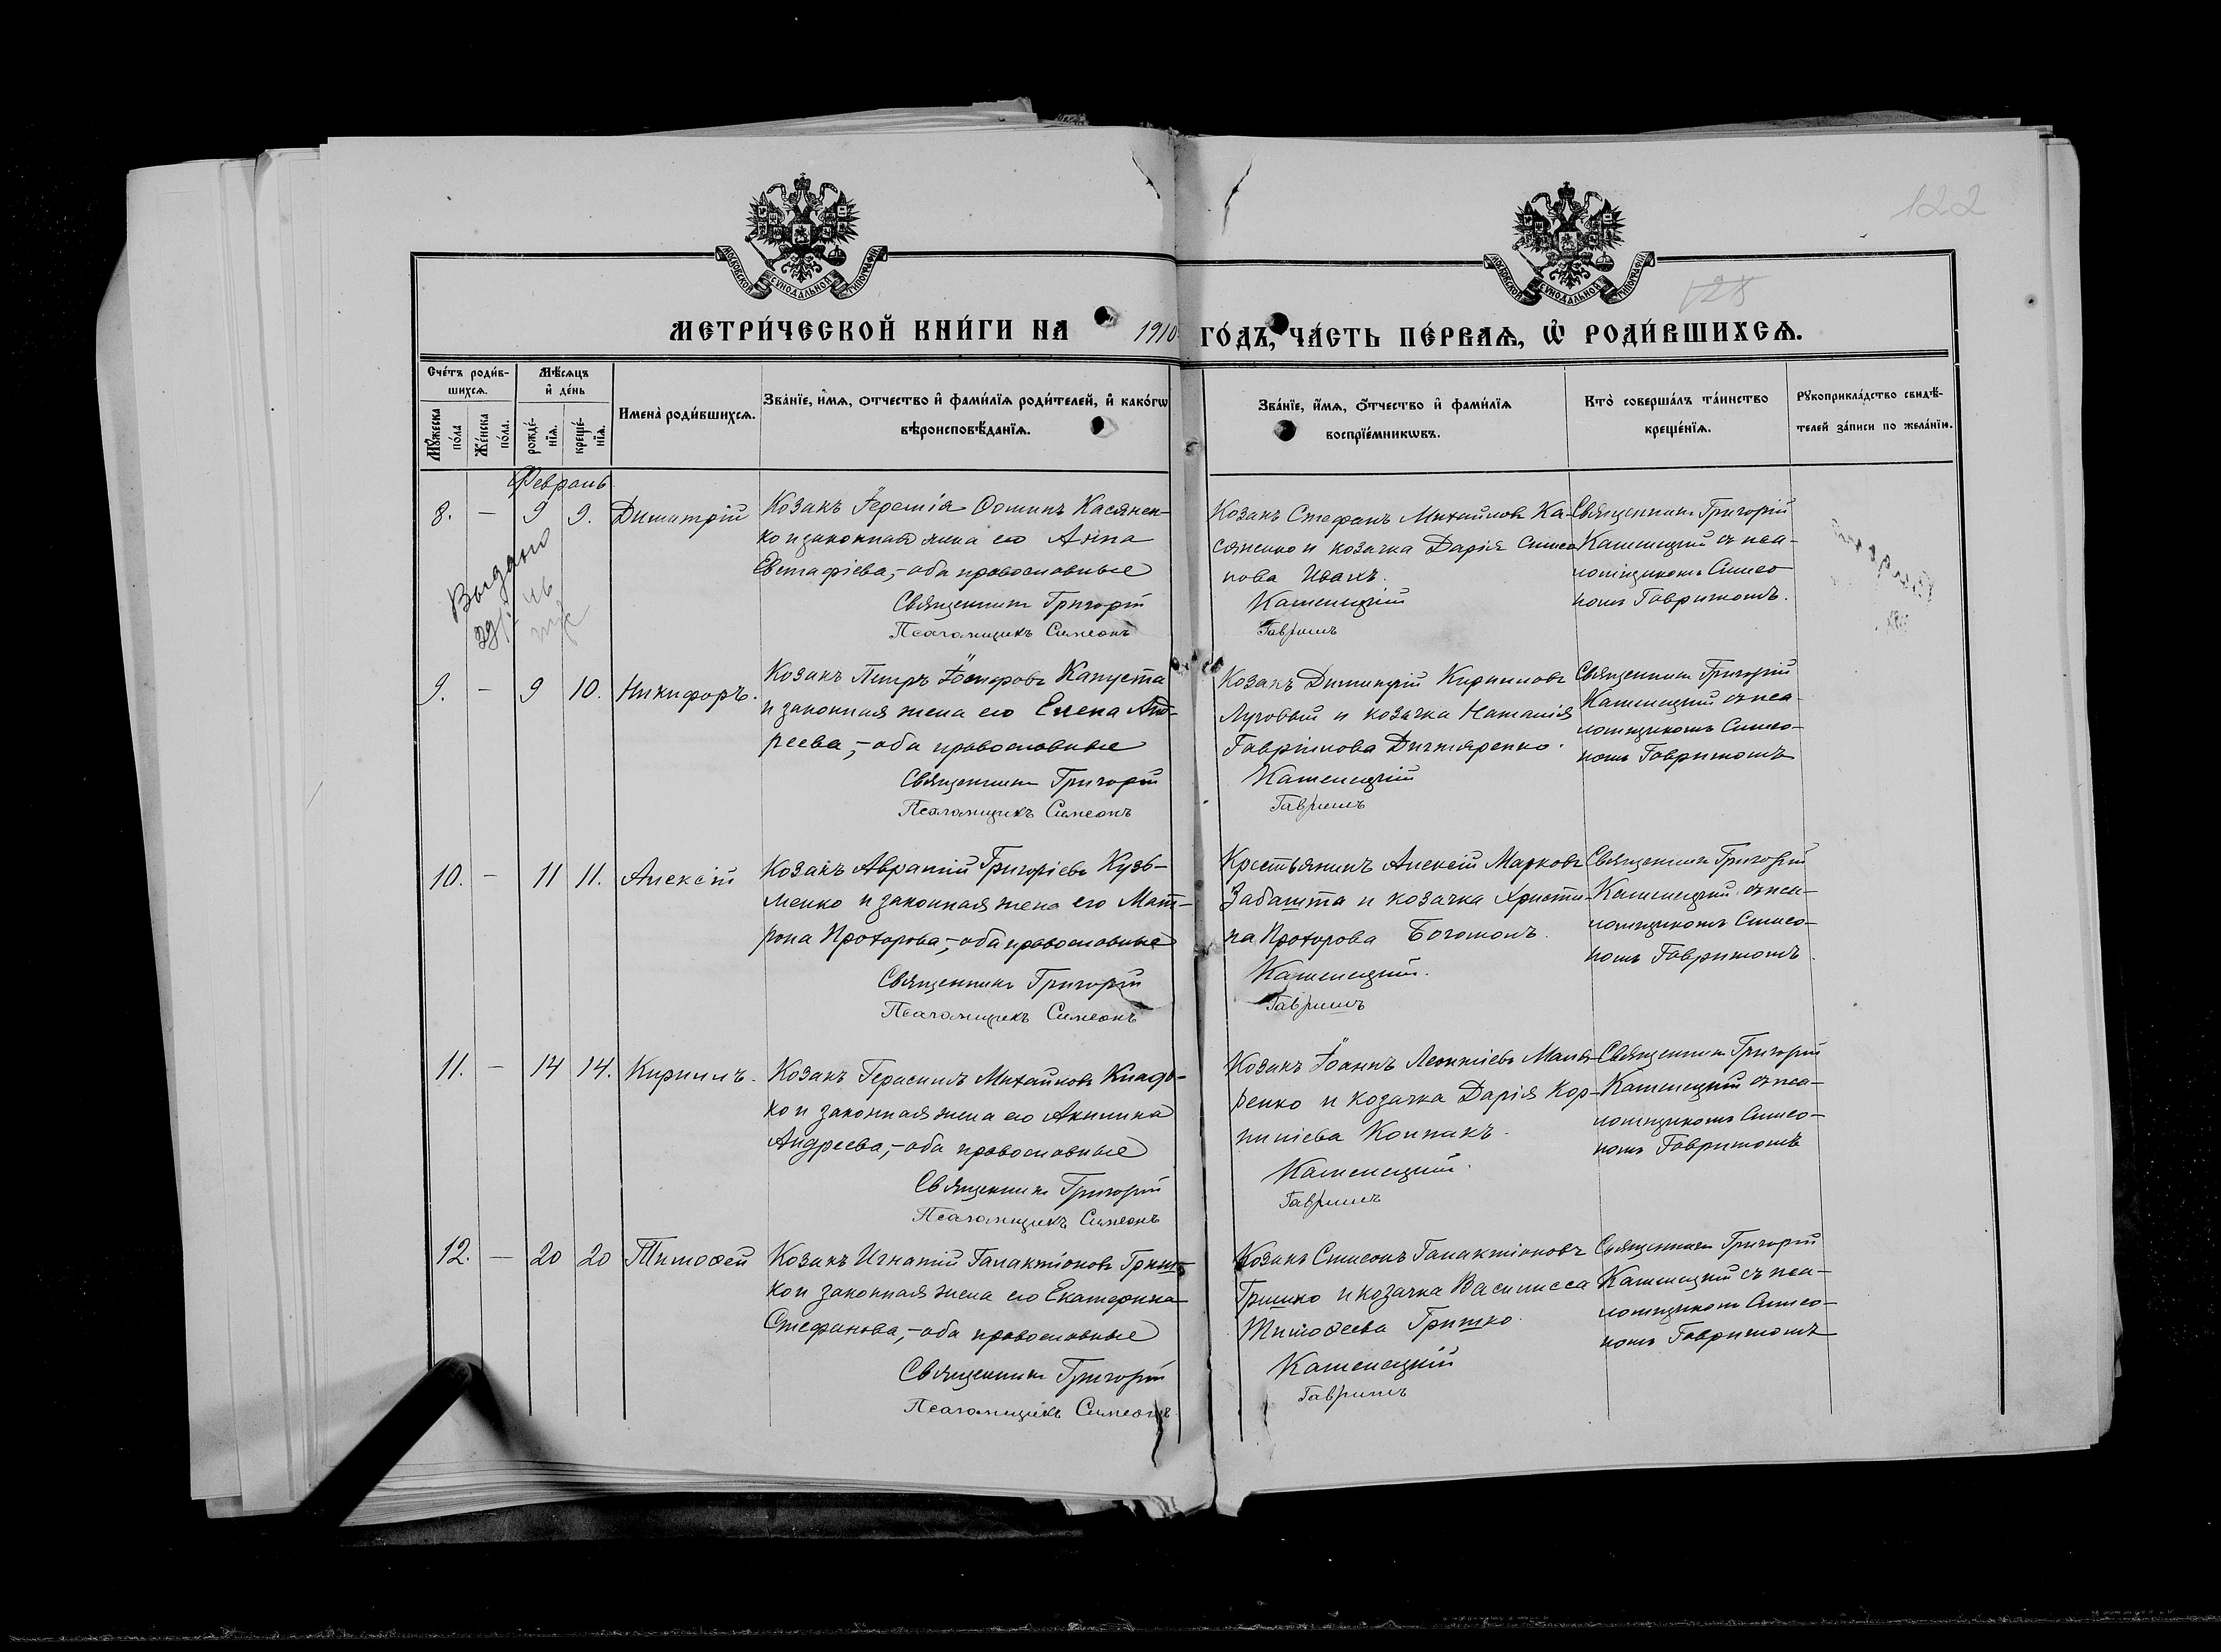 122
МОСКОВСКОЙ СУНОДАЛЬНОЙ ТИПОГРАФІИ
МОСКОВСКОЙ СУНОДАЛЬНОЙ ТИПОГРАФІИ
125
МЕТРИ́ЧЕСКОЙ КНИ́ГИ НА 1910 ГО́ДЪ, ЧА́СТЬ ПЕ́РВАѦ, Ѡ РОДИ́ВШИХСѦ.
Сче́тъ роди́в-
шихсѧ.
Мꙋ́жеска по́ла
Же́нска по́ла.
Мѣ́сѧцъ
и҆ де́нь
рожде́-
нїѧ.
креще́-
нїѧ.
И҆мена̀ роди́вшихсѧ.
Зва́нїе, и҆́мѧ, ѻ҆́тчество и҆ фами́лїѧ роди́телей, и҆ како́гѡ
вѣроисповѣ́данїѧ.
Зва́нїе, и҆́мѧ, ѻ҆́тчество и҆ фами́лїѧ
воспрїе́мникѡвъ.
Кто̀ соверша́лъ та́инство
креще́нїѧ.
Рꙋкоприкла́дство свидѣ́-
телей за́писи по жела́нїю.
Февраль
8. — 9 9. Димитрій
Козакъ Іеремія Осипъ Касянен-
ко и законная жена его Анна
Евстафіева,- оба православные
Священникъ Григорій
Псаломщикъ Симеонъ
Козакъ Стефанъ Михайловъ Ка-
сяненко и козачка Дарія Симео
нова Исакъ.
Каменецкій
Гавришъ
Священникъ Григорій
Каменецкій съ пса-
ломщикомъ Симео
номъ Гавришомъ.
Выдано
9. — 9 10. Никифоръ.
Козакъ Петръ Іосифовъ Капуста
и законная жена его Елена Анд-
реева,- оба православные
Священникъ Григорій
Псаломщикъ Симеонъ
Козакъ Димитрій Кирилловъ
Луговый и козачка Наталія
Гавріилова Дигтяренко.
Каменецкій
Гавришъ
Священникъ Григорій
Каменецкій съ пса-
ломщикомъ Симео-
номъ Гавришомъ
10. — 11 11. Алексій
Козакъ Аврамій Григоріевъ Кузь-
менко и законная жена его Мат-
рона Прохорова,- оба православные
Священникъ Григорій
Псаломщикъ Симеонъ
Крестьянинъ Алексій Марковъ
Забашта и козачка Христи-
на Прохорова Богомолъ.
Каменецкій.
Гавришъ
Священникъ Григорій
Каменецкій съ пса-
ломщикомъ Симео-
номъ Гавришомъ.
11. — 14 14. Кириллъ.
Козакъ Герасимъ Михайловъ Кладь-
ко и законная жена его Акилина
Андреева,- оба православные
Священникъ Григорій
Псаломщикъ Симеонъ
Козакъ Іоаннъ Леонтіевъ Маля-
ренко и козачка Дарія Кор-
нилієва Колпакъ.
Каменецкій.
Гавришъ
Священникъ Григорій
Каменецкій съ пса-
ломщикомъ Симео-
номъ Гавришомъ
12. — 20 20 Тимоѳей
Козакъ Игнатій Галактіоновъ Гриш-
ко и законная жена его Екатерина
Стефанова,- оба православные
Священникъ Григорій
Псаломщикъ Симеонъ
Козакъ Симеонъ Галактіоновъ
Гришко и козачка Василисса
Тимоѳеева Гришко.
Каменецкій
Гавришъ
Священникъ Григорій
Каменецкій съ пса-
ломщикомъ Симео-
номъ Гавришомъ